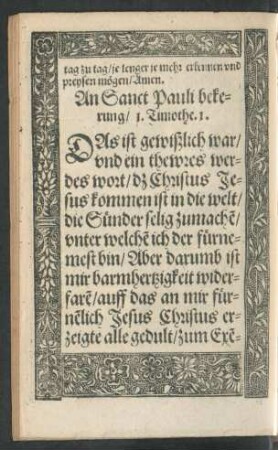 tag zu tag/je lenger je mehr erkennen vnd
preysen mögen/Amen.
An Sanct Pauli beke-
rung/ 1. Timothe. 1.
DAs ist gewißlich war/
vnd ein thewres wer-
des wort/dz Christus Je-
sus kommen ist in die welt/
die Sünder selig zumachē/
vnter welchē ich der fürne-
mest bin/Aber darumb ist
mir barmhertzigkeit wider-
farē/auff das an mir für-
nēlich Jesus Christus er-
zeigte alle gedult/zum Exē-